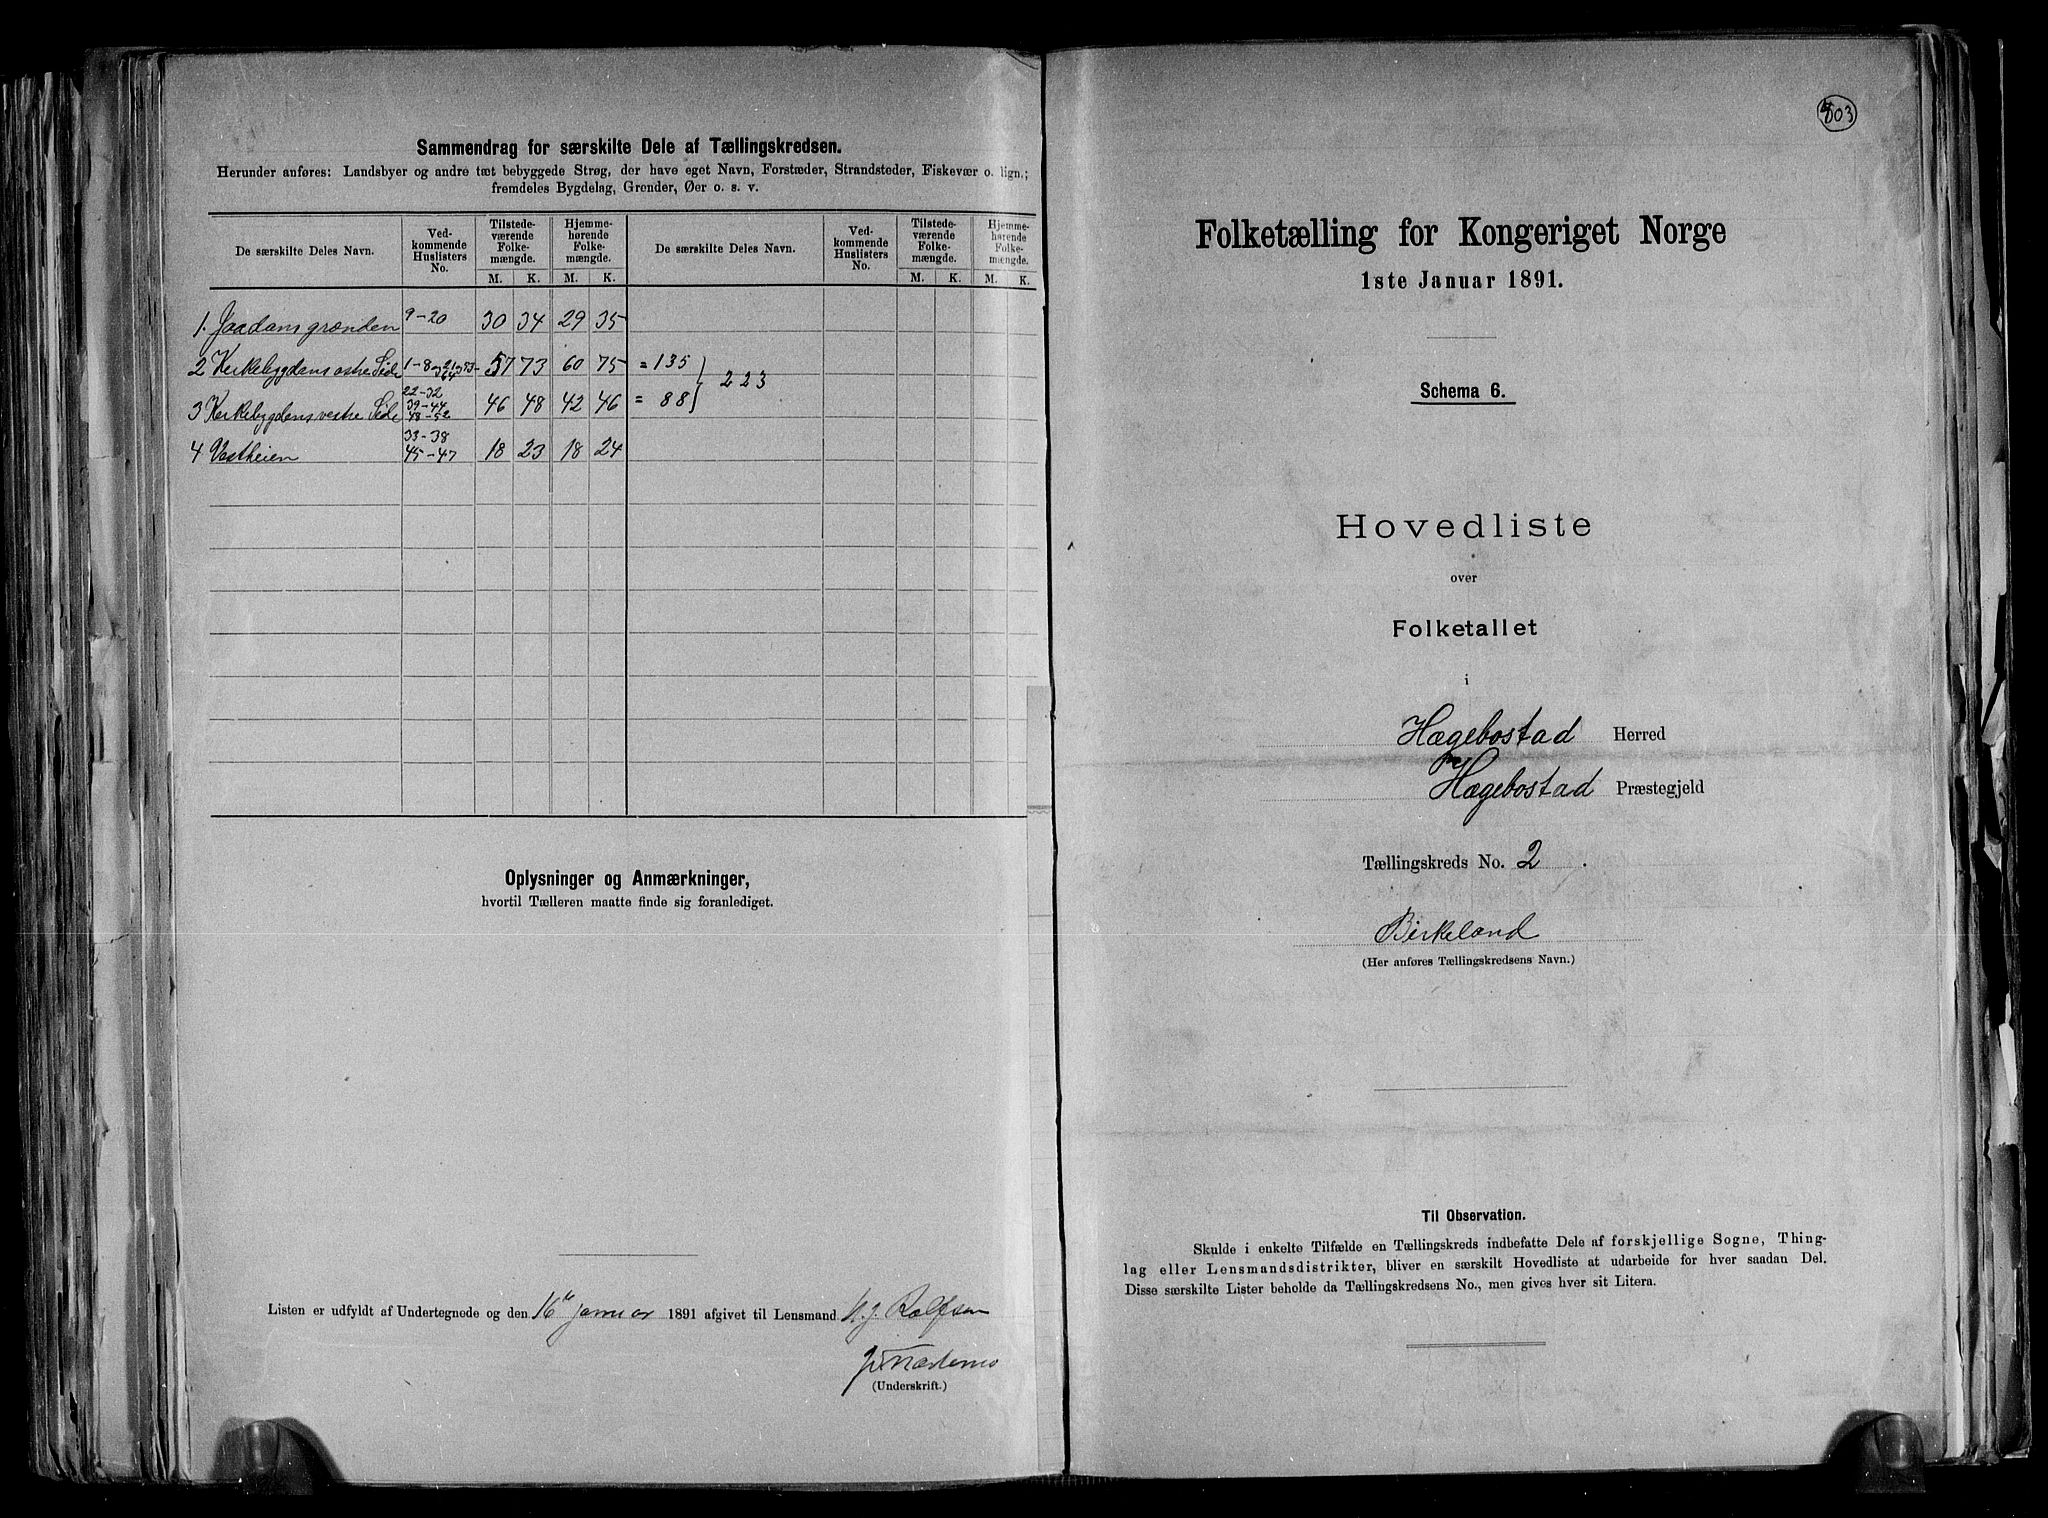 Sammendrag for særskilte Dele af Tællingskredsen.
Herunder anføres: Landsbyer og andre tæt bebyggede Strøg, der have eget Navn, Forstæder, Strandsteder, Fiskevær o. lign.;
fremdeles Bygdelag, Grender, Øer o. s. v.
De særskilte Deles Navn. Ved-kommende Huslisters No. Tilstede-værende Folke-mængde. Hjemme-hørende Folke-mængde. De særskilte Deles Navn. Ved-kommende Huslisters No. Tilstede-værende Folke-mængde. Hjemme-hørende Folke-mængde.
M. K. M. K. M. K. M. K.
1. Jaadansgrænden 9-20 30 34 29 35
2 Kirkebygdens østre Side 1-8 57 73 60 75 = 135
223
3 Kirkebygdens vestre Side 22-32 39-44 48-52 46 48 42 46 = 88
4 Vestheien 33-38 45-47 18 23 18 24
Oplysninger og Anmærkninger,
hvortil Tælleren maatte finde sig foranlediget.
Listen er udfyldt af Undertegnede og den 16de januar 1891 afgivet til Lensmand Rolfsen
(Underskrift.)
803
Folketælling for Kongeriget Norge
1ste Januar 1891.
Schema 6.
Hovedliste
over
Folketallet
i
Hægebostad Herred
Hægebostad Præstegjeld
Tællingskreds No. 2.
Birkeland
(Her anføres Tællingskredsens Navn.)
Til Observation.
Skulde i enkelte Tilfælde en Tællingskreds indbefatte Dele af forskjellige Sogne, Thing-
lag eller Lensmandsdistrikter, bliver en særskilt Hovedliste at udarbeide for hver saadan Del.
Disse særskilte Lister beholde da Tællingskredsens No., men gives hver sit Litera.